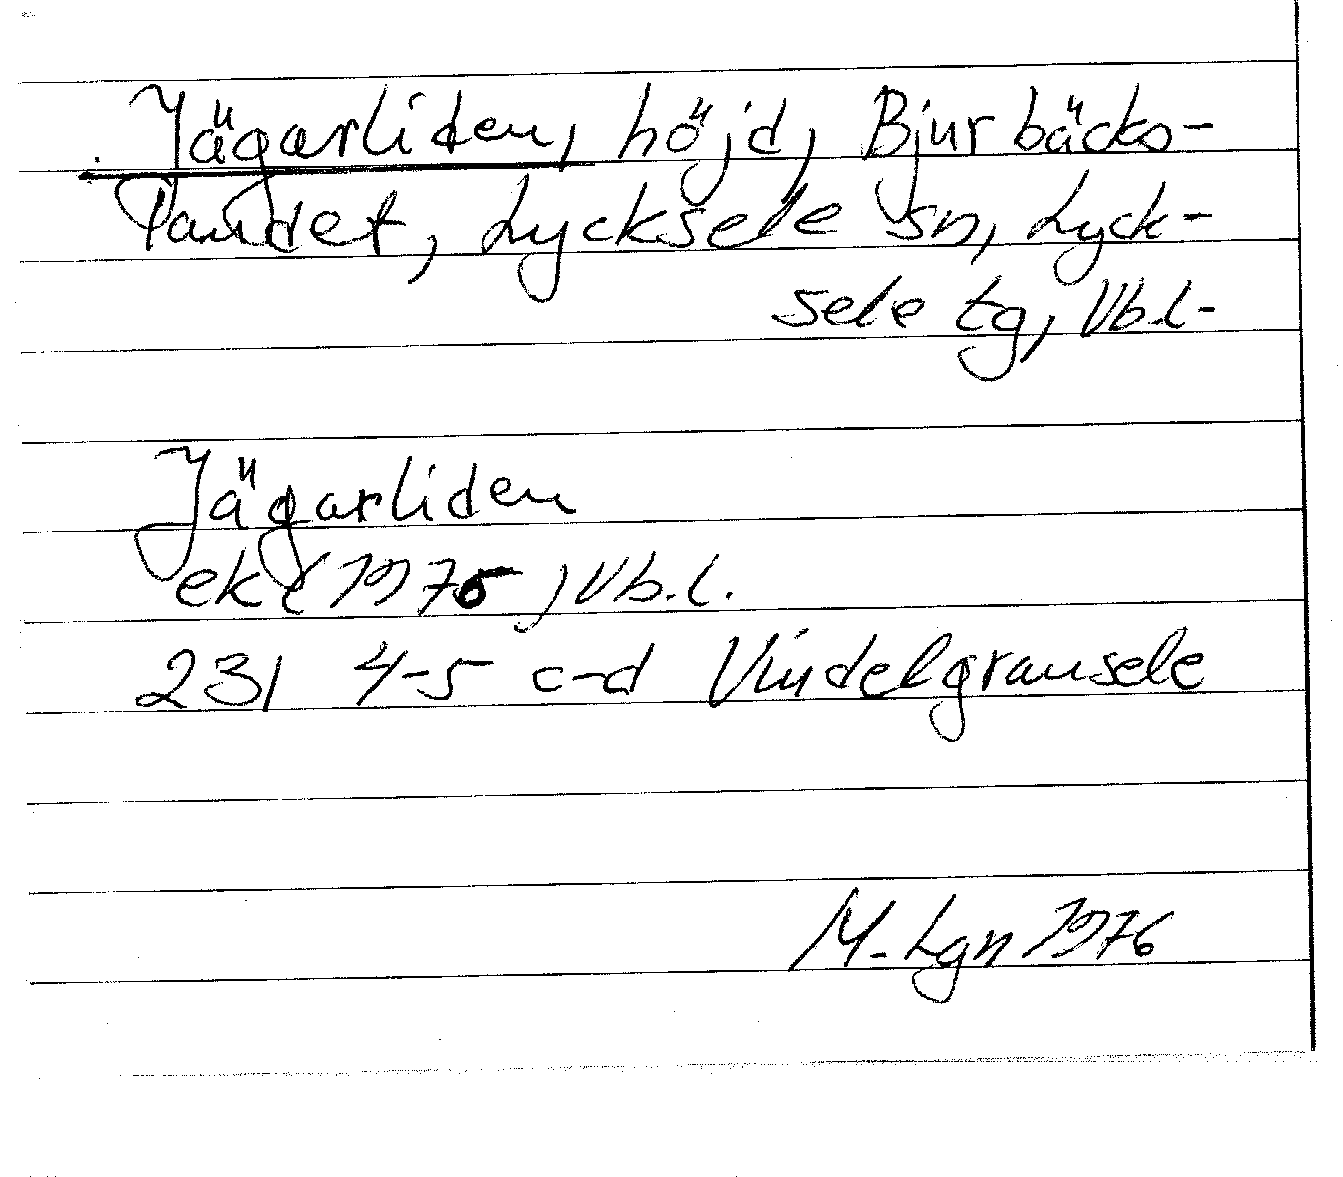 Jägarliden, höjd, Bjurbäcks-
landet, Lycksele sn, Lyck-
sele tg, Vb.l-
Jägarliden
ek (1975), Vb.l.
231 4-5 c-d Vindelgransele
M. Lgn 1976